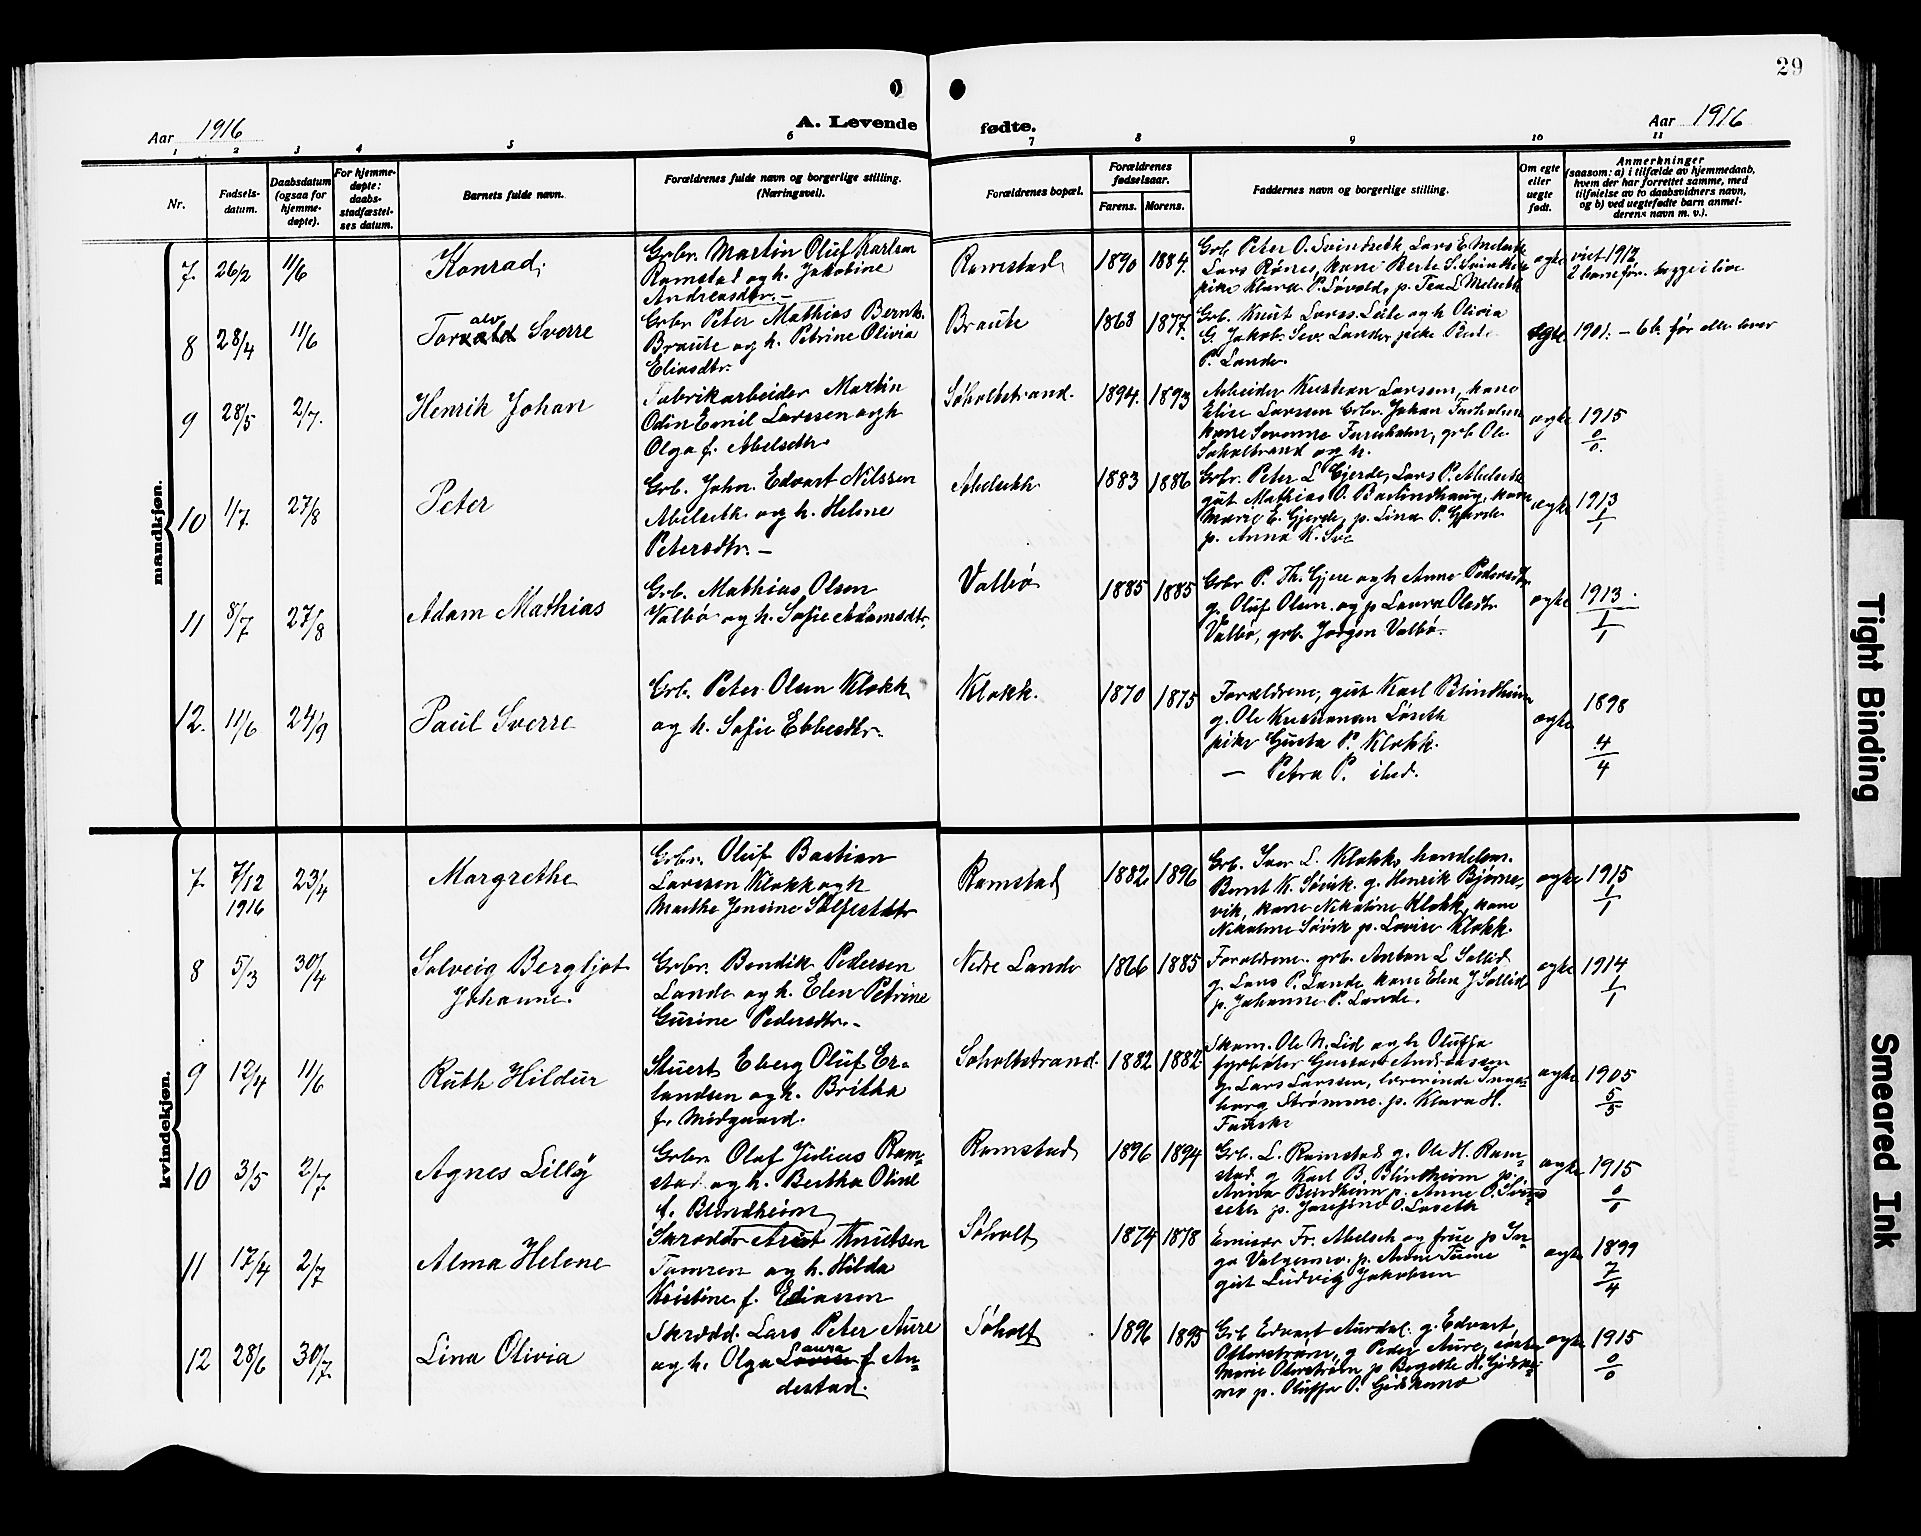 29
Aar 1916
A. Levende
fødte.
Aar 1916
1 2 3 4 5 6 7 8 9 10 11
Nr.
Fødsels-
datum.
Daabsdatum
(ogsaa for
hjemme-
døpte).
For hjemme-
døpte:
daabs-
stadfæstel-
ses datum.
Barnets fulde navn.
Forældrenes fulde navn og borgerlige stilling.
(Næringsvei).
Forældrenes bopæl.
Forældrenes
fødselsaar.
Farens. Morens.
Faddernes navn og borgerlige stilling.
Om egte
eller
uegte
født.
Anmerkninger
(saasom: a) i tilfælde av hjemmedaab,
hvem der har forrettet samme, med
tilføielse av to daabsvidners navn,
og b) ved uegtefødte barn anmel-
derens navn m. v.).
mandkjøn.
7. 26/2 11/6
Konrad.
Grbr. Martin Oluf Karlsen
Ramstad og h. Jakobine
Andreasdtr. —
Ramstad
1890 1884.
Grb. Peter O. Svindseth, Lars E. Melseth
Lars Rønes, kone Berte S. Svindseth
pike Klara P. Løvold, p. Tea L. Melseth
egte
viet 1912
2 barn før. begge i live
8 28/4 11/6
alv
Torvald Sverre
Grbr. Peter Mathias Bernh.
Braute og h. Petrine Olivia
Eliasdtr.
Braute
1868 1877.
Grb. Knut Larss. Liite og h. Olivia
G. Jakob. Sev. Lande, pike Berte
P. Lande.
egte
1901. — 6 b. før alle lever
9 28/5 2/7.
Henrik Johan
Fabrikarbeider Martin
Odin Emil Larssen og h
Olga f. Abelseth
Søholtstrand.
1894. 1893
Arbeider Kristian Larssen, kone
Elise Larssen Grbr. Johan Furholm
kone Severine Fureholm, grb. Ole
Søholtstrand og h.
egte
1915
0/0.
10 1/7. 27/8
Peter
Grb. John Edvart Nilssen
Abelseth og h. Helene
Petersdtr. —
Abelseth
1883 1886
Grbr. Peter L Gjerde, Lars P. Abelseth
gut Mathias O. Barlindhaug, kone
Marie E. Gjerde, p. Lina P. Gjerde
p. Anna K. Sve
egte
1913
1/1
11 8/7 27/8
Adam Mathias
Grb. Mathias Olsen
Valbø og h. Sofie Adamsdtr.
Valbø
1885 1885
Grbr P. Th. Gjere og h Anne Pedersdtr
g. Oluf Olsen og p Laura Olsdtr.
Valbø, grb. Jørgen Valbø.
egte
1913.
1/1
12. 11/6 24/9
Paul Sverre
Grb. Peter Olsen Klokk
og h. Sofie Ebbesdtr.
Klokk.
1870 1875
Forældrene, gut Karl Blindheim
g. Ole Kristiansen Løseth
pike Gusta P. Klokk.
— Petra P. ibid.
egte
1898
4/4
kvindekjøn.
7. 7/12 23/4
1916
Margrethe
Grbr. Oluf Bastian
Larssen Klokk og h
Marthe Jensine Sølfestdtr
Ramstad
1882 1896
Grb. Iver L. Klokk, handelsm.
Bernt K. Søvik. g. Henrik Bjørne,
vik, kone Nikoline Klokk, kone
Nikoline Søvik p. Lovise Klokk.
egte
1915
1/1
8 5/3 30/4
Solveig Bergljot
Johanne.
Grbr. Bendik Pedersen
Lande og h. Elen Petrine
Gurine Pedersdtr. —
Nedre Lande
1866 1885
Forældrene. grb. Anton L Sollid
g. Lars P. Lande, kone Elen J Sollid
p. Johanne P. Lande.
egte
1914
1/1
9 12/4 11/6
Ruth Hildur
Stuert Eberg Oluf Er-
landsen og h. Britha
f. Midgaard.
Søholtstrand.
1882 1882.
Skom. Ole N. Lid og h Oluffa
fyrbøter Gustav Andreassen
g. Lars Larssen, lærerinde Inge-
borg Strømme. p. Klara H.
egte
1905
5/5
10 3/5 2/7.
Agnes Lilly
Grbr. Olaf Julius Ram-
stad og h. Bertha Oline
f. Blindheim
Ramstad
1896 1894
Grb. L. Ramstad g. Ole H. Ram-
stad g Karl B. Blindheim p.
Anna Blindheim p. Anne O. Svind-
seth p. Josefine O. Løseth
egte
1915
0/0
11 17/4 2/7
Alma Helene
Skrædder Arut Knutsen
Tomren og h. Hilda
Kristine f. Eliasson
Søholt
1874 1878
Emissær Fr. Abelseth og frue p In-
ga Valgermo. p. Anne Tusne
gut Ludvig Jakobsen
egte
1899
7/4
12 28/6 30/7.
Lina Olivia
Skrædd. Lars Peter Aure
aura
og h. Olga Lovise f An-
destad.
Søholt
1896 1895
Grb Edvart Aurdal. g. Edvart
Otterstrøm, g Peder Aure, søster
Marie Oterstrøm, p Bergette H. Gjelske-
mo p. Oluffa O. Gjelskemo
egte
1915
0/0
Tight Binding
Smeared Ink